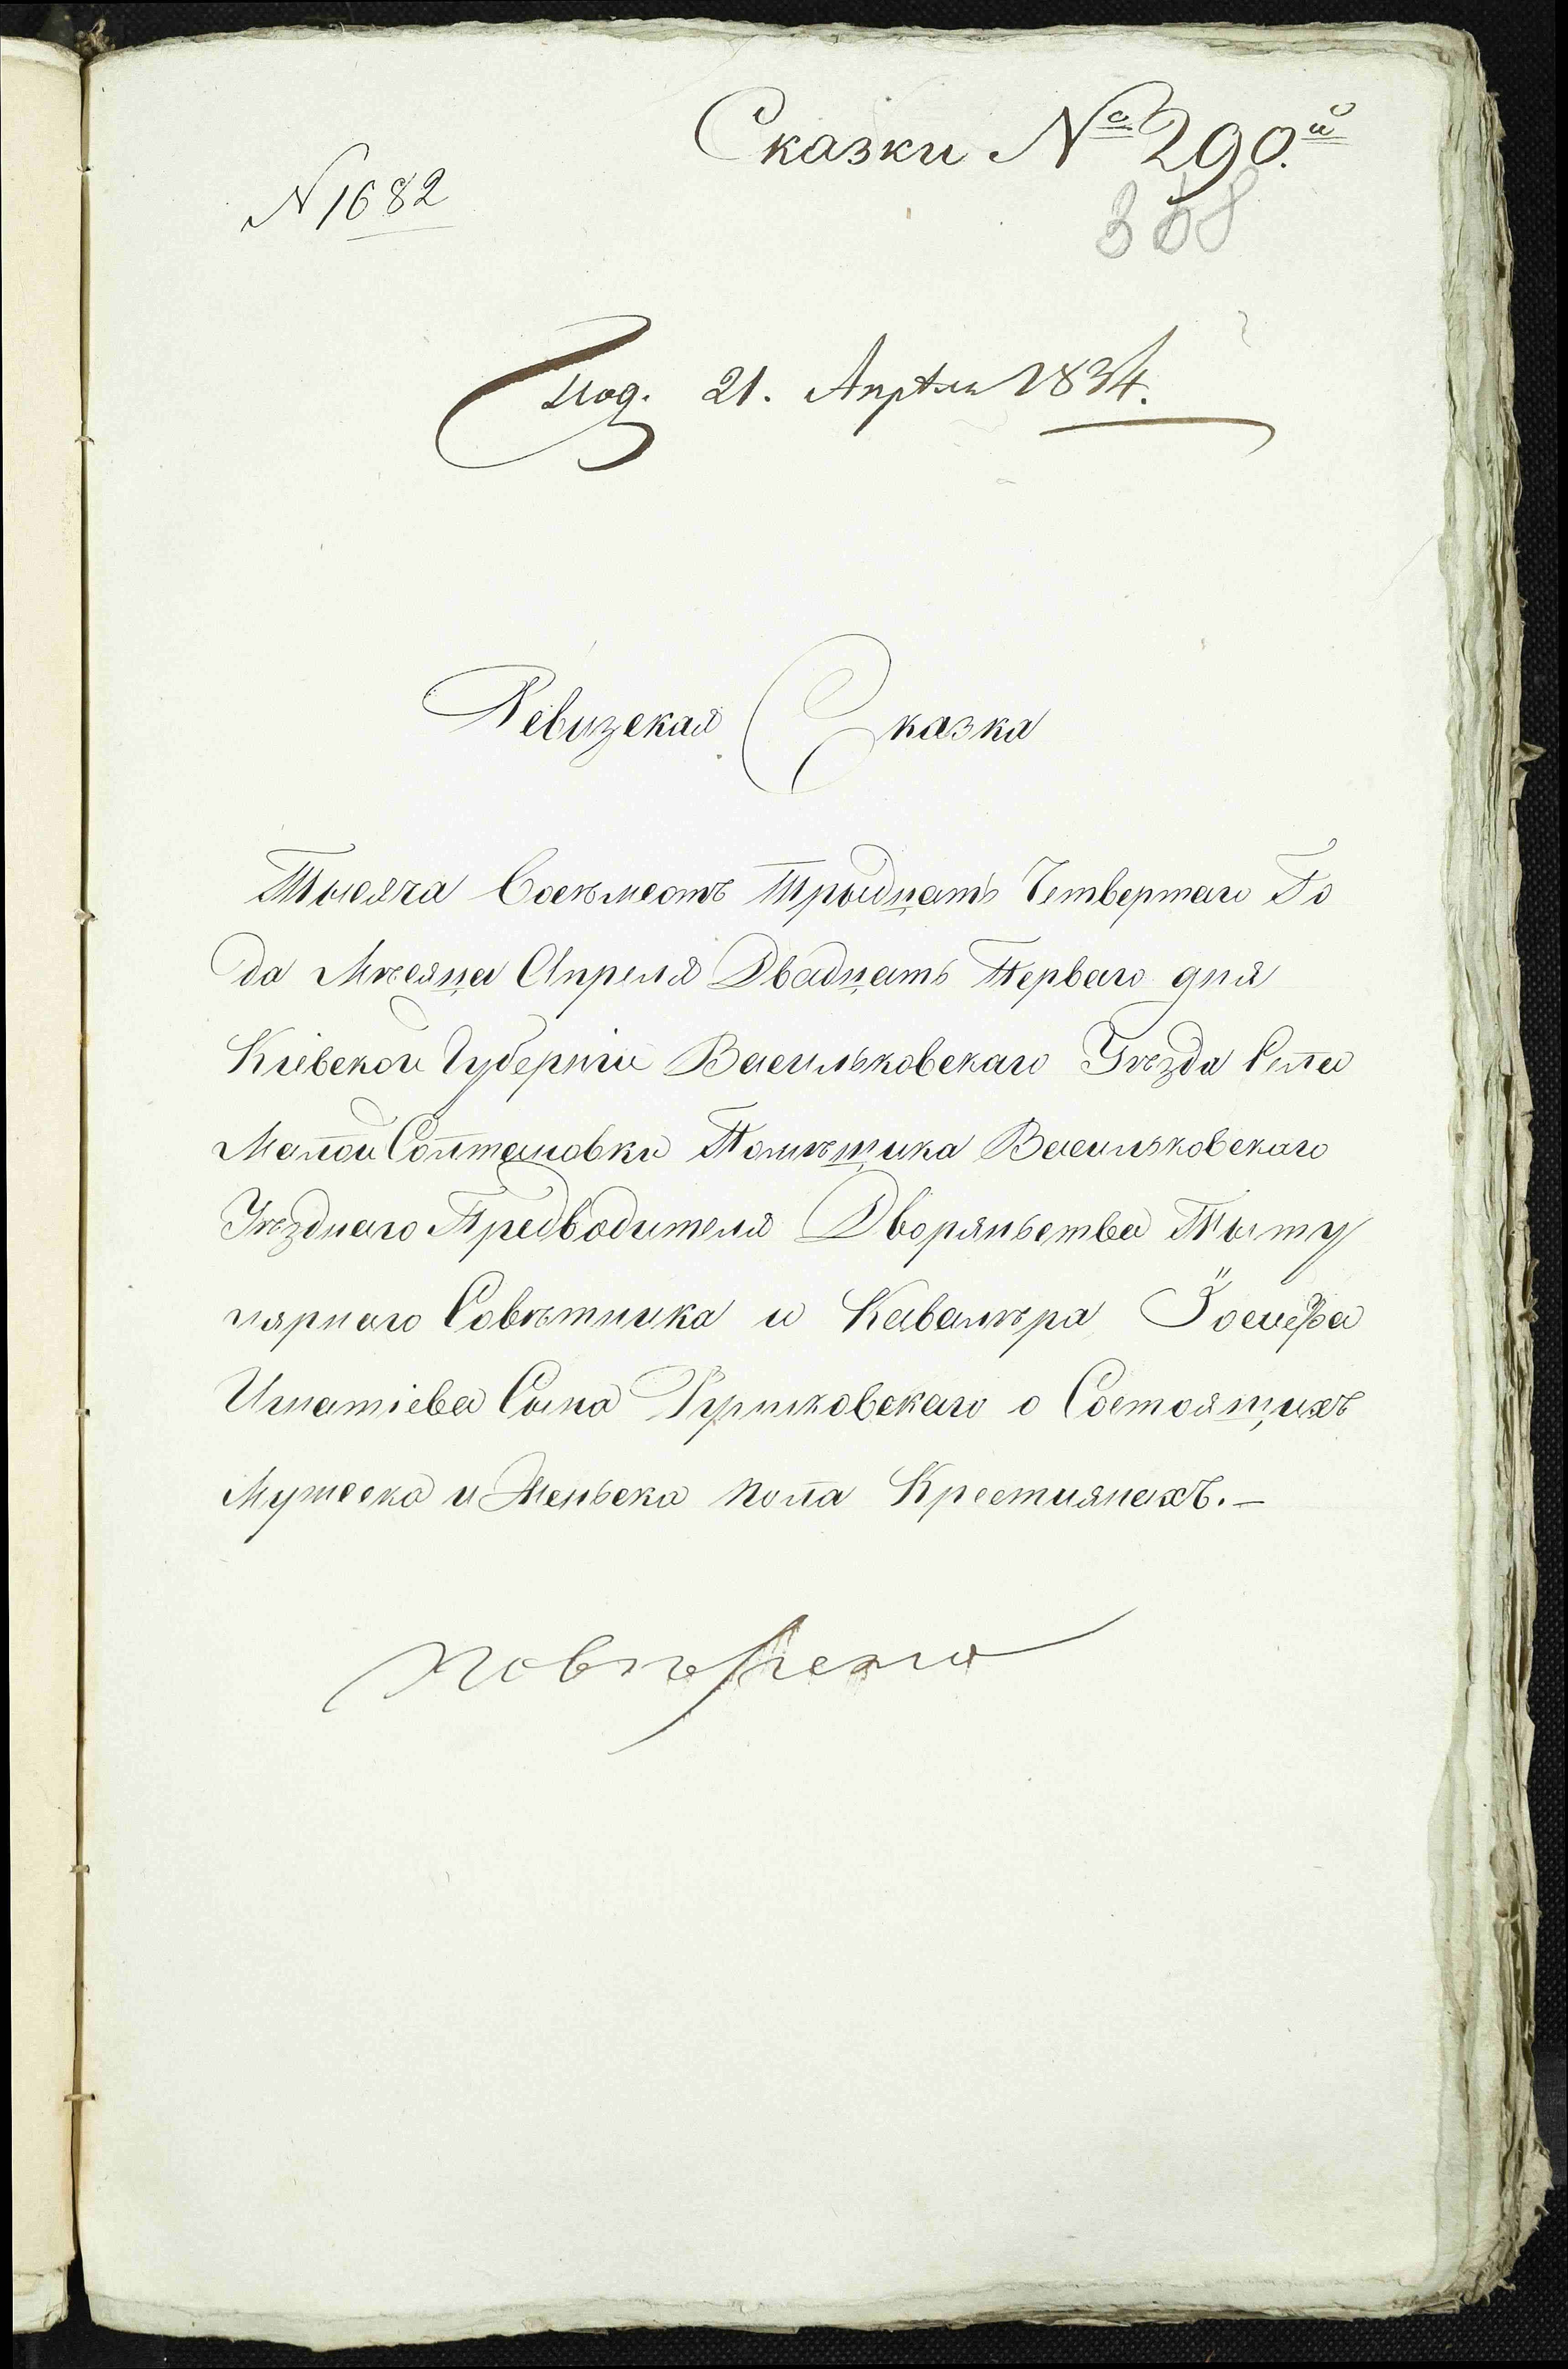 Сказки № 290.й
N 1682
368
Под. 21. Апрѣля 1834.
Ревизская Сказка
Тысяча Восемсотъ Трыдцать Четвертаго Го
да Мѣсяца Апреля Двадцать Перваго дня
Кіевской Губерніи Васильковскаго Уѣзда Села
Малой Солтановки Помѣщика Васильковскаго
Уѣзднаго Предводителя Дворяньства Тыту
лярнаго Совѣтника и Кавалѣра Іосифа
Игнатіева Сына Руликовскаго о Состоящихъ
Мужеска и Женьска пола Крестиянахъ.—
повѣрена